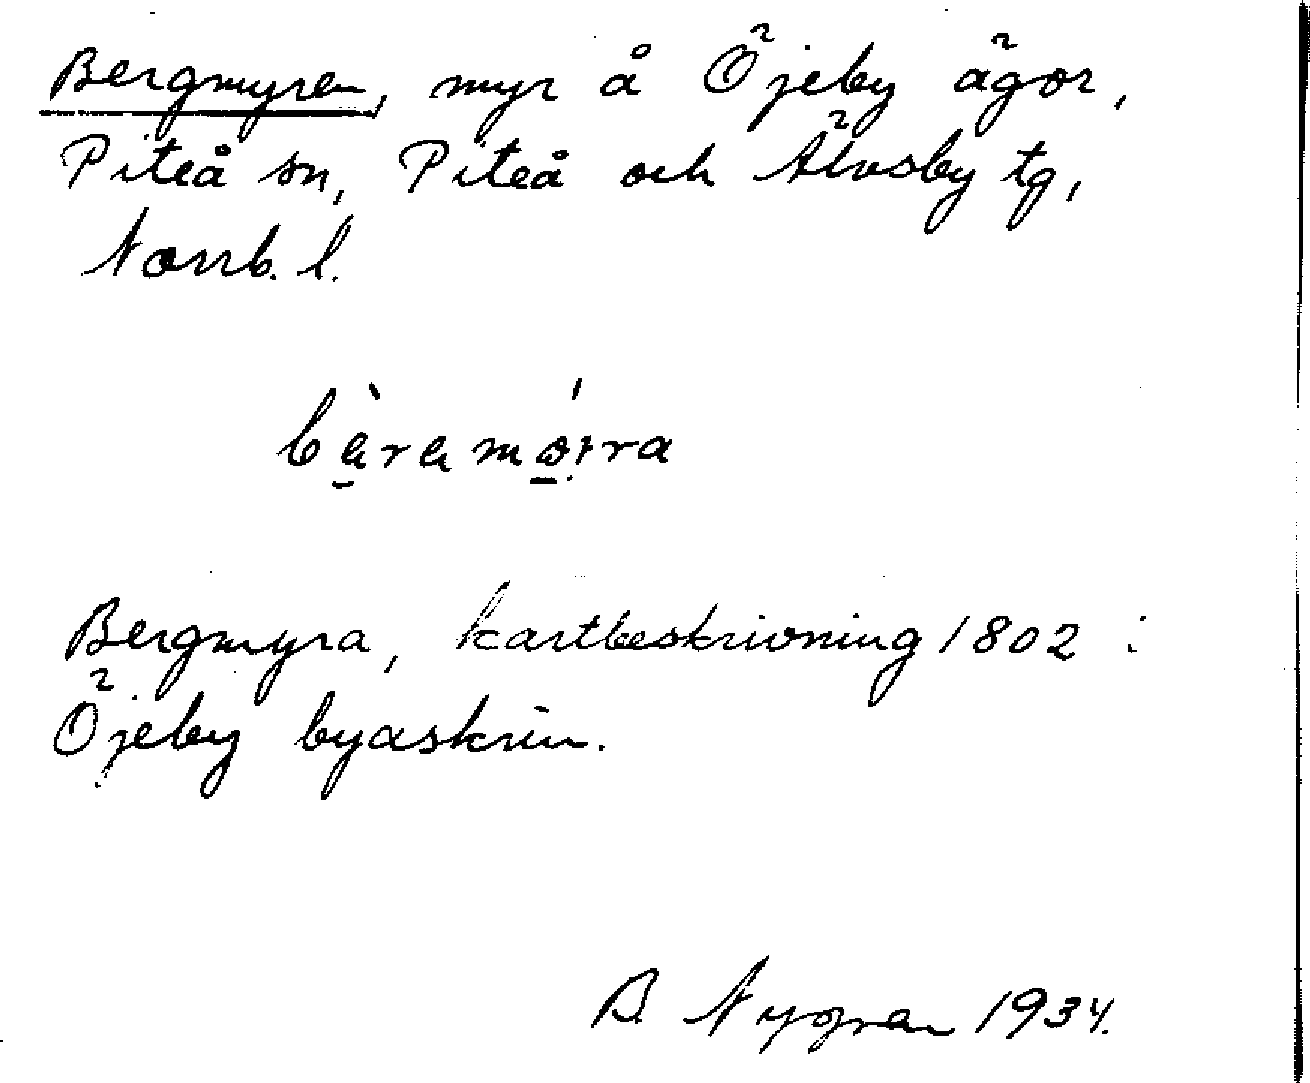 Bergmyren, myr å Öjeby ägor,
Piteå sn, Piteå och Älvsby tg,
Norrb. l.
bàramǿira
Bergmyra, kartbeskrivning 1802 i
Öjeby byaskrin.
B. Nygren 1934.